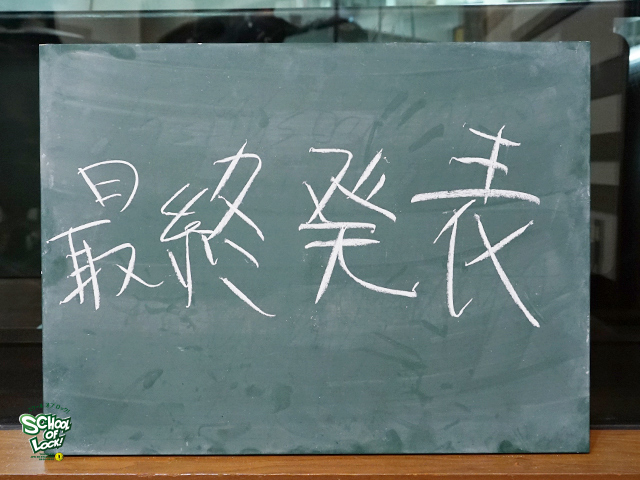 最終発表
SCHOOL
OF
LOCK!